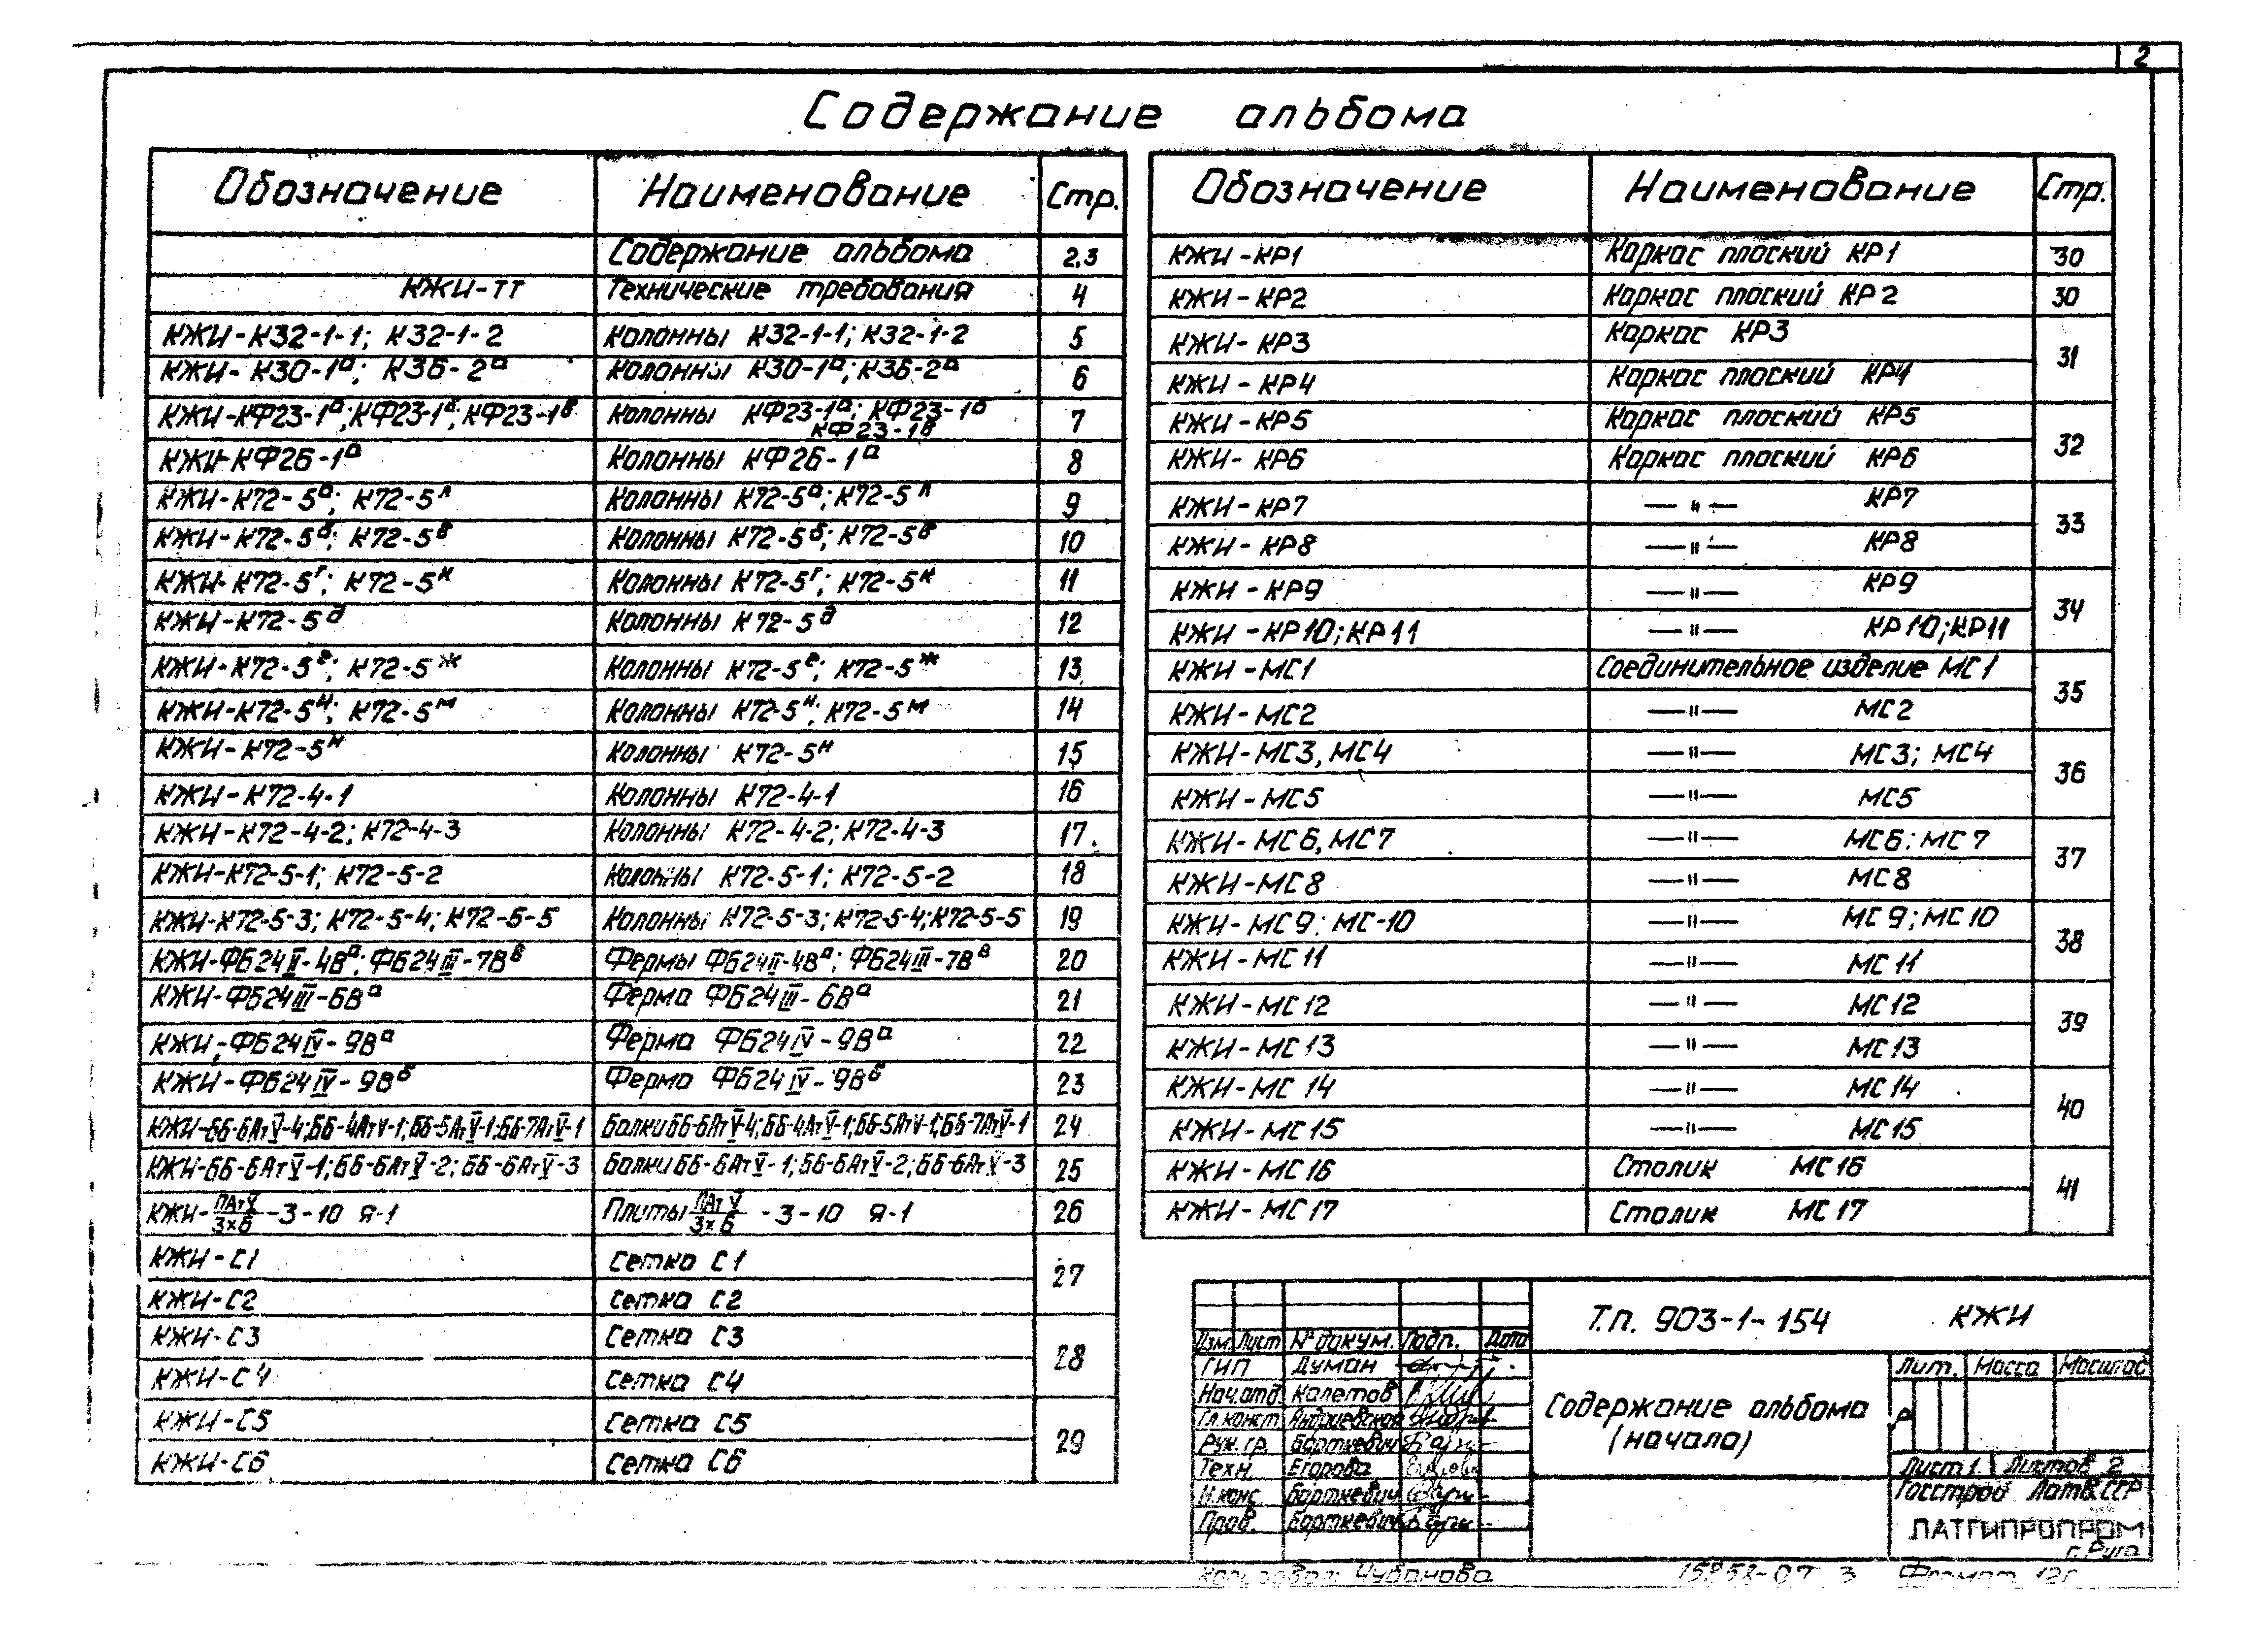 2
Содержание альбома
Обозначение Наименование Стр.
Содержание альбома 2,3
КЖИ-ТТ Технические требования 4
КЖИ-К32-1-1; К32-1-2 Колонны К32-1-1; К32-1-2 5
КЖИ-К30-1а; К36-2а Колонны К30-1а; К36-2а 6
КЖИ-КФ23-1а; КФ23-1б; КФ23-1в Колонны КФ23-1а; КФ23-1б
КФ23-1в 7
КЖИ-КФ26-1а Колонны КФ26-1а 8
КЖИ-К72-5а; К72-5л Колонны К72-5а; К72-5л 9
КЖИ-К72-5б; К72-5в Колонны К72-5б; К72-5в 10
КЖИ-К72-5г; К72-5к Колонны К72-5г; К72-5к 11
КЖИ-К72-5д Колонны К72-5д 12
КЖИ-К72-5е; К72-5ж Колонны К72-5е; К72-5ж 13
КЖИ-К72-5и; К72-5м Колонны К72-5и; К72-5м 14
КЖИ-К72-5н Колонны К72-5н 15
КЖИ-К72-4-1 Колонны К72-4-1 16
КЖИ-К72-4-2; К72-4-3 Колонны К72-4-2; К72-4-3 17
КЖИ-К72-5-1; К72-5-2 Колонны К72-5-1; К72-5-2 18
КЖИ-К72-5-3; К72-5-4; К72-5-5 Колонны К72-5-3; К72-5-4; К72-5-5 19
КЖИ-ФБ24II-4Ва; ФБ24III-7Вв Фермы ФБ24II-4Ва; ФБ24III-7Вв 20
КЖИ-ФБ24III-6Ва Ферма ФБ24III-6Ва 21
КЖИ-ФБ24IV-9Ва Ферма ФБ24IV-9Ва 22
КЖИ-ФБ24IV-9Вб Ферма ФБ24IV-9Вб 23
КЖИ-ББ-6АтV-4; ББ-4АтV-1; ББ-5АтV-1; ББ-7АтV-1 Балки ББ-6АтV-4; ББ-4АтV-1; ББ-5АтV-1; ББ-7АтV-1 24
КЖИ-ББ-6АтV-1; ББ-6АтV-2; ББ-6АтV-3 Балки ББ-6АтV-1; ББ-6АтV-2; ББ-6АтV-3 25
КЖИ-ПАтV/3х6-3-10 Я-1 Плиты ПАтV/3х6-3-10 Я-1 26
КЖИ-С1 Сетка С1 27
КЖИ-С2 Сетка С2
КЖИ-С3 Сетка С3 28
КЖИ-С4 Сетка С4
КЖИ-С5 Сетка С5 29
КЖИ-С6 Сетка С6
Обозначение Наименование Стр.
КЖИ-КР1 Каркас плоский КР1 30
КЖИ-КР2 Каркас плоский КР2 30
КЖИ-КР3 Каркас КР3 31
КЖИ-КР4 Каркас плоский КР4
КЖИ-КР5 Каркас плоский КР5 32
КЖИ-КР6 Каркас плоский КР6
КЖИ-КР7 —"— КР7 33
КЖИ-КР8 —"— КР8
КЖИ-КР9 —"— КР9 34
КЖИ-КР10; КР11 —"— КР10; КР11
КЖИ-МС1 Соединительное изделие МС1 35
КЖИ-МС2 —"— МС2
КЖИ-МС3, МС4 —"— МС3; МС4 36
КЖИ-МС5 —"— МС5
КЖИ-МС6, МС7 —"— МС6; МС7 37
КЖИ-МС8 —"— МС8
КЖИ-МС9; МС-10 —"— МС9; МС10 38
КЖИ-МС11 —"— МС11
КЖИ-МС12 —"— МС12 39
КЖИ-МС13 —"— МС13
КЖИ-МС14 —"— МС14 40
КЖИ-МС15 —"— МС15
КЖИ-МС16 Столик МС16 41
КЖИ-МС17 Столик МС17
Т.п. 903-1-154 КЖИ
Изм. Лист № докум. Подп. Дата
ГИП Думан
Нач.отд. Калетов
Гл.конст Андриевская
Рук.гр. Барткевич
Техн. Егорова
Н.конс Барткевич
Пров. Барткевич
Содержание альбома
(начало)
Лит. Масса Масштаб
Р
Лист 1 Листов 2
Госстрой Латв.ССР
ЛАТГИПРОПРОМ
г. Рига
Копировал: Чубанова 15852-07 3 Формат 12г